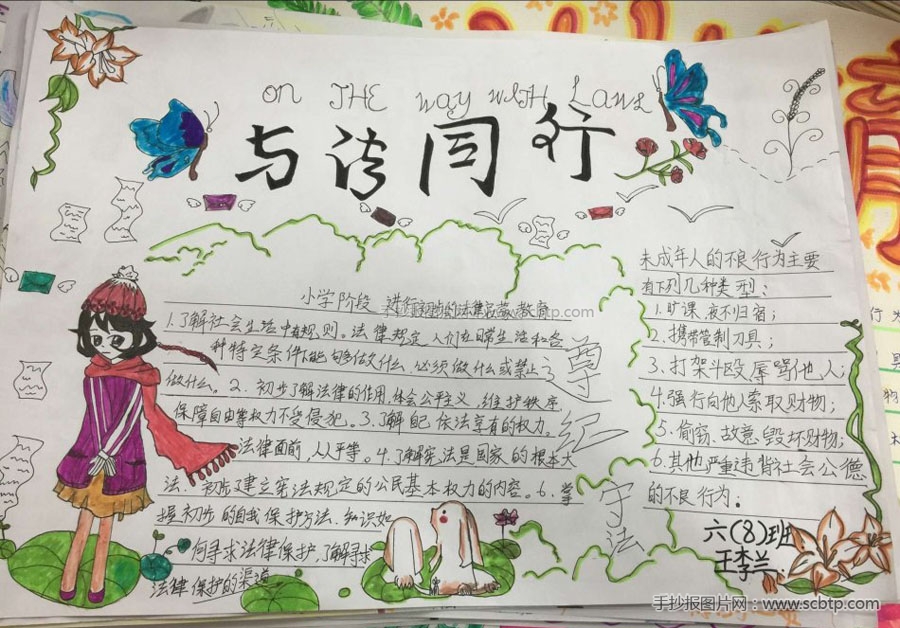 on THE way wITH Laws
与法同行
小学阶段 进行初步的法律启蒙教育
1.了解社会生活中有规则。法律规定人们在日常生活和各
种特定条件下能够做什么、必须做什么或禁止
做什么。2.初步了解法律的作用,体会公平主义,维护秩序
保障自由等权力不受侵犯。3.了解自己依法享有的权力。
法律面前,人人平等。4.了解宪法是国家的根本大
法。初步了建立宪法规定的公民基本权力的内容。6.掌
握初步的自我保护方法、知识如
何寻求法律保护,了解寻求
法律保护的渠道
尊纪守法
未成年人的不良行为主要
有下列几种类型:
1.旷课、夜不归宿;
2.携带管制刀具;
3.打架斗殴、辱骂他人;
4.强行向他人索取财物;
5.偷窃、故意毁坏财物;
6.其他严重违背社会公德
的不良行为。
六(8)班
王李兰
手抄报图片网:www.scbtp.com